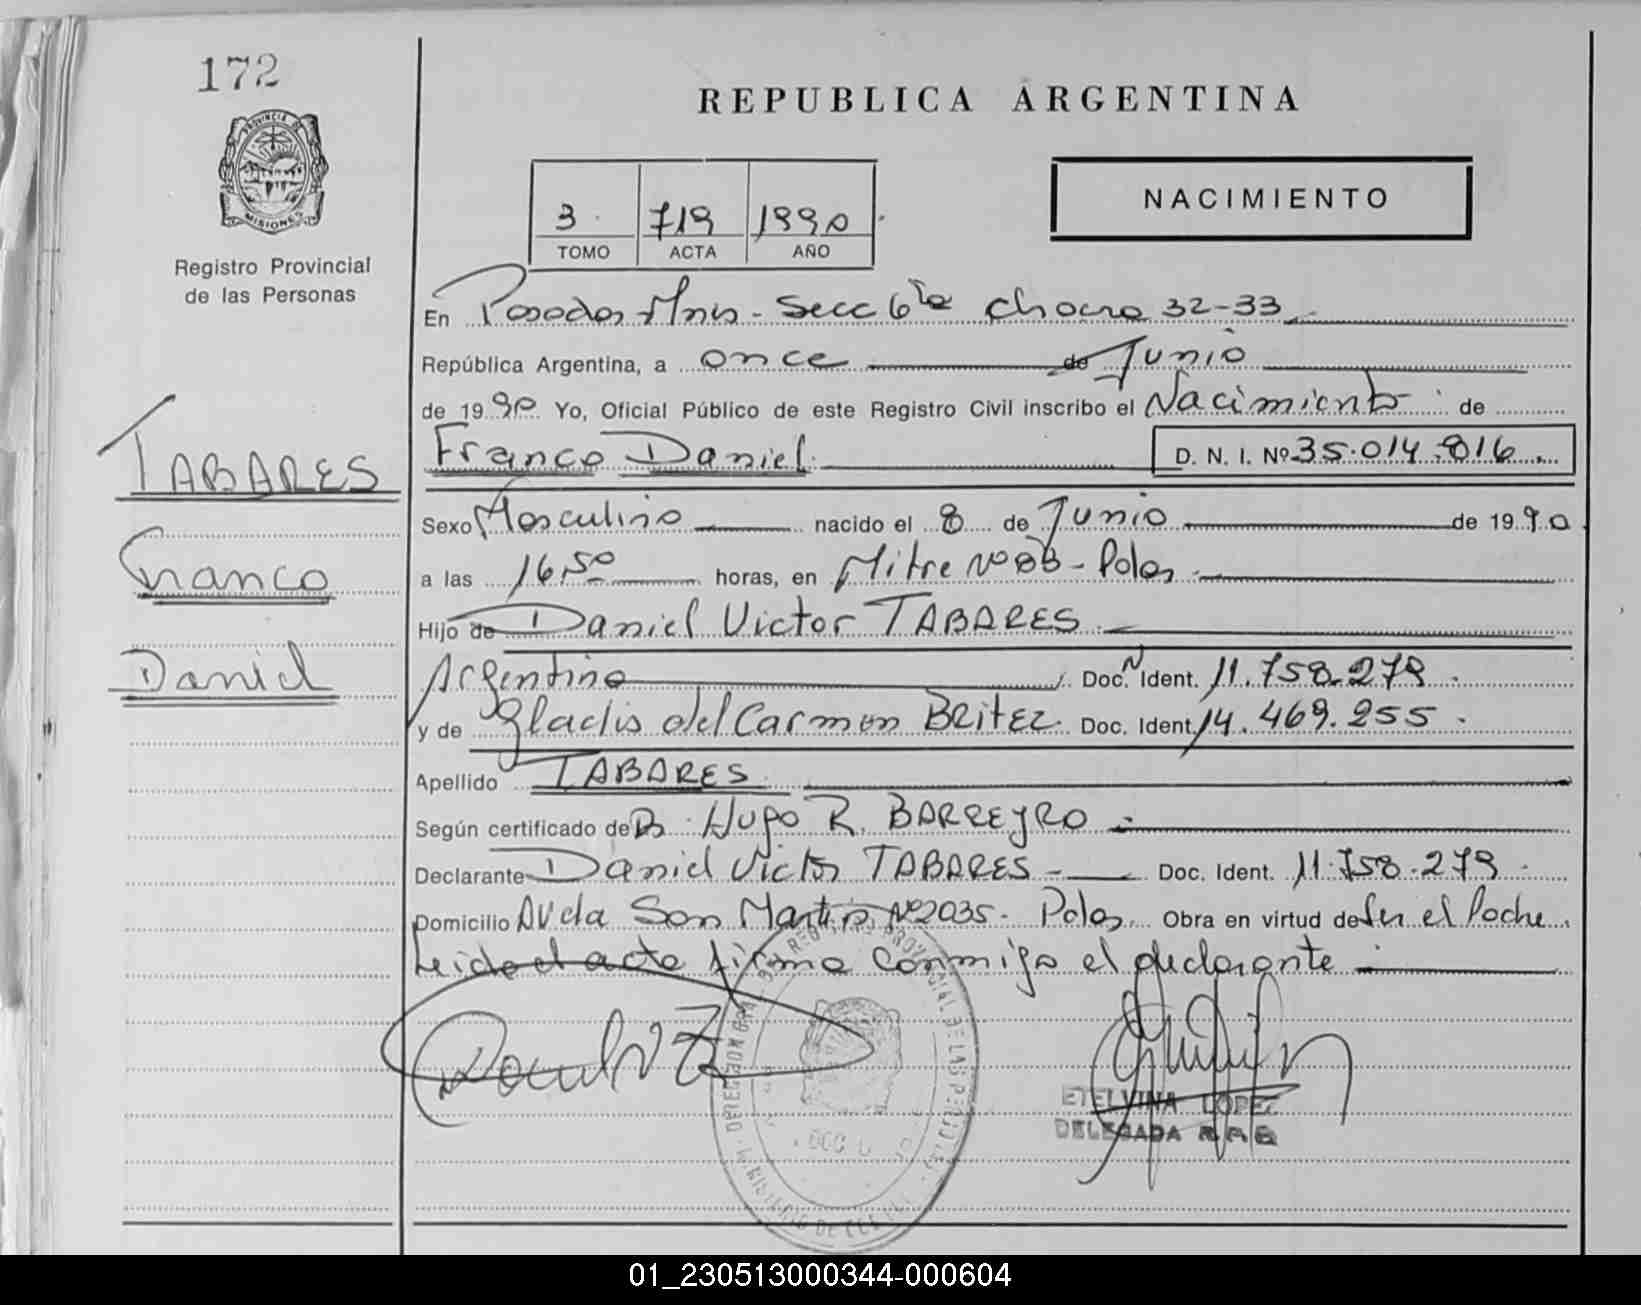 172
REPUBLICA ARGENTINA
PROVINCIA DE
MISIONES
Registro Provincial
de las Personas
3 719 1990
TOMO ACTA AÑO
NACIMIENTO
En Posadas Mnes - Secc 6ta Chacra 32-33
República Argentina, a once de Junio
de 1990 Yo, Oficial Público de este Registro Civil inscribo el Nacimiento de
Franco Daniel D. N. I. Nº 35.014.816
TABARES
Franco
Daniel
Sexo Masculino nacido el 8 de Junio de 1990
a las 16,50 horas, en Mitre Nº - Pdas
Hijo de Daniel Victor TABARES
Argentino Doc. Ident. 11.758.279
y de Gladis del Carmen BRITEZ Doc. Ident. 14.469.255
Apellido TABARES
Según certificado de Dr. Hugo R. BARREYRO
Declarante Daniel Victor TABARES Doc. Ident. 11.758.279
Domicilio Avda San Martin Nº 2035 - Pdas Obra en virtud de Ser el Padre
Leida el acta firma conmigo el declarante
ETELVINA LOPEZ
DELEGADA
01_230513000344-000604